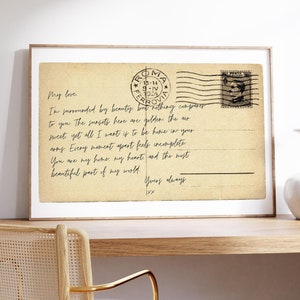 ROMA
FERROVIA
My love,
I'm surrounded by beauty, but nothing compares
to you. The sunsets here are golden, the air
sweet, yet all I want is to be home in your
arms. Every moment apart feels incomplete.
You are my home, my heart, and the most
beautiful part of my world.
Yours always,